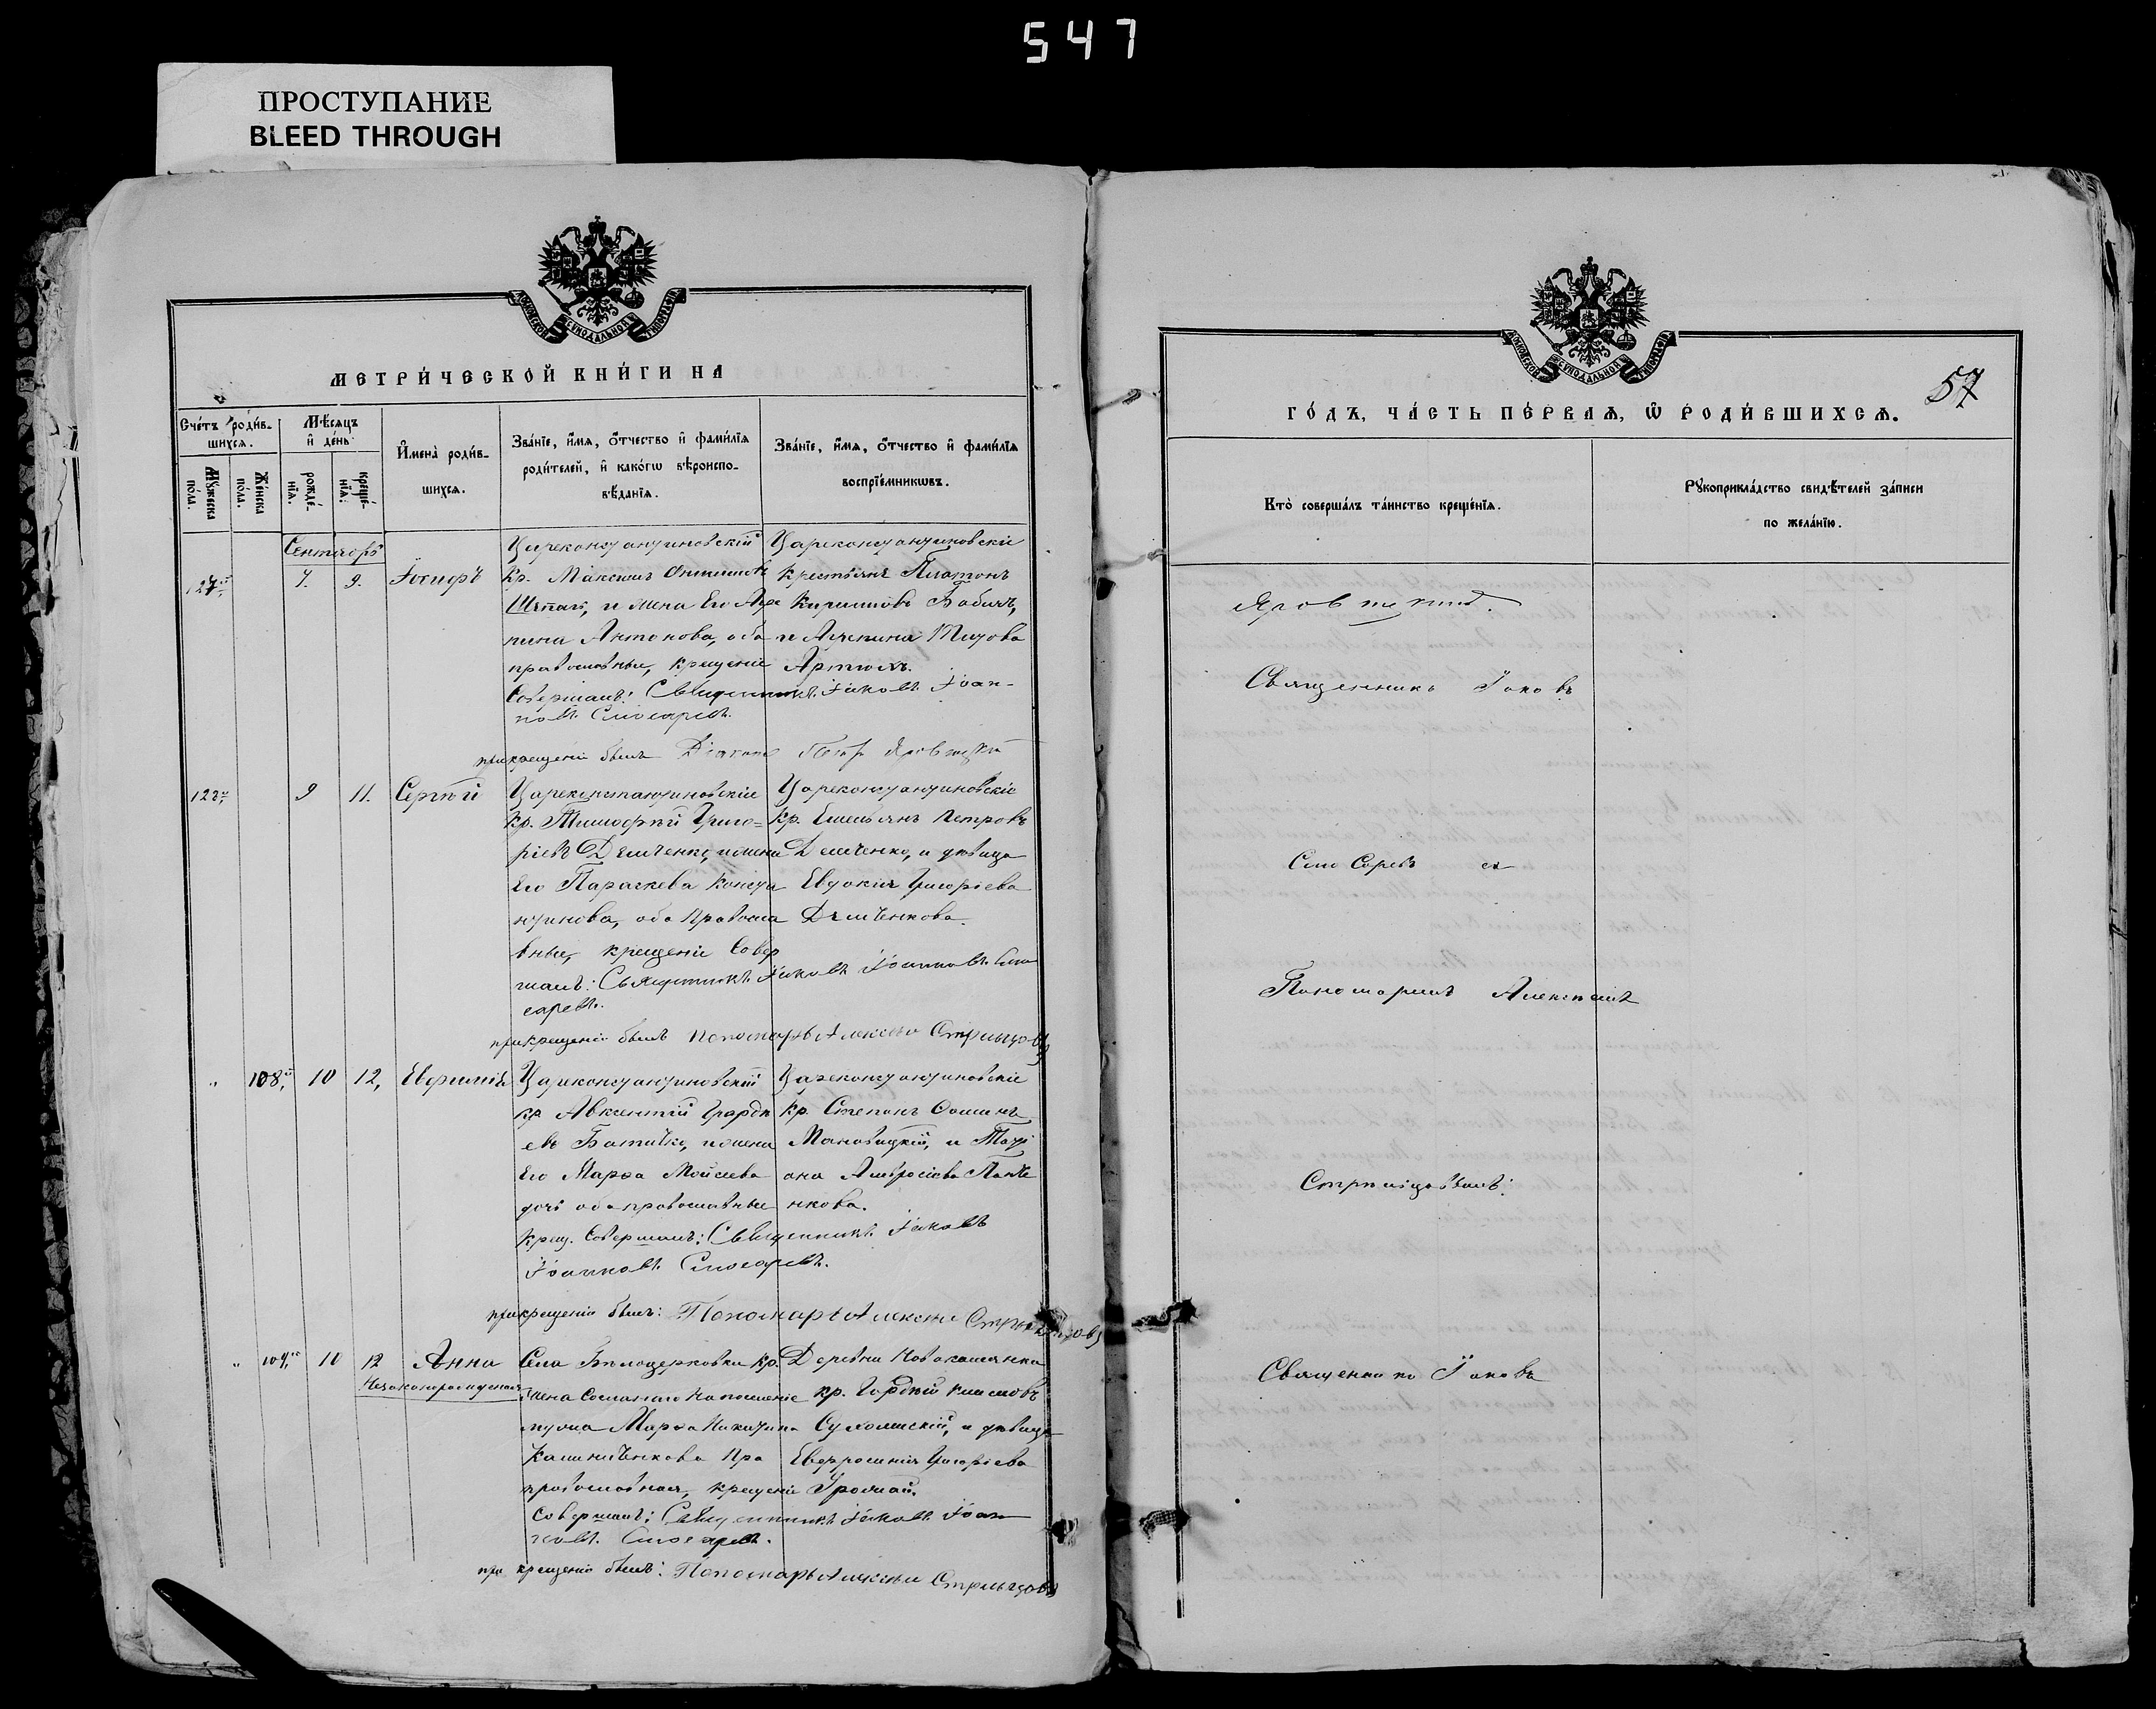 547
ПРОСТУПАНИЕ
BLEED THROUGH
МОСКОВСКОЙ СѴНОДАЛЬНОЙ ТИПОГРАФІИ
МЕТРИ́ЧЕСКОЙ КНИ́ГИ НА
Сче́тъ роди́в-
шихсѧ.
Мꙋ́жеска по́ла.
Же́нска по́ла.
Мѣ́сѧцъ
и҆ де́нь
рожде́-
нїѧ.
креще́-
нїѧ:
И҆мена̀ роди́в-
шихсѧ.
Зва́нїе, и҆́мѧ, ѻ҆́тчество и҆ фами́лїѧ
роди́телей, и҆ како́гѡ вѣроиспо-
вѣ́данїѧ.
Зва́нїе, и҆́мѧ, ѻ҆́тчество и҆ фами́лїѧ
воспрїе́мникѡвъ.
Сентябрь
127. 7. 9. Іосифъ
Цареконстантиновскій
Кр. Максимъ
и жена Его Агри
пина Антонова, оба
православные, крещеніе
Совершалъ: Священникъ Іаковъ Іоан-
новъ Слюсаревъ.
Цареконстантиновскіе
крестьяне Платонъ
Кириловъ Бабичъ,
при крещеніи былъ Діаконъ Петръ Яровицкій
128. 9 11. Сергѣй
Цареконстантиновскіе
кр. Тимофѣй Григо-
ріевъ Демченко, и жена
Его Параскева Конста
нтинова, оба Правосла
вные, крещеніе Совер
шалъ: Священникъ Іаковъ Іоанновъ Слю
саревъ.
Цареконстантиновскіе
кр. Емельянъ Петровъ
Демченко, и дѣвица
Евдокія Григоріева
Демченкова.
при крещеніи былъ Пономарь Алексѣй Стрельцовъ
108. 10 12, Евфимія
Цареконстантиновскій
кр. Авксентій Гордѣ
евъ и жена
Его Марѳа Мойсеева
оба православные
Крещ. Совершалъ: Священникъ Іаковъ
Іоанновъ Слюсаревъ.
Цареконстантиновскіе
кр. Степанъ Ѳоминъ
Мановицкій, и Тати
ана Амвросіева Панче
нкова.
при крещеніи былъ: Пономарь Алексѣй Стрельцовъ
109. 10 12 Анна
Незаконорожденная
Села Бѣлоцерковки кр.
жена Сосланаго на поселеніе
мужа Марѳа Никитина
Калиниченкова Пра
православная, крещеніе
Совершалъ: Священникъ Іаковъ Іоан
новъ Слюсаревъ.
Деревни Новокаменки
кр. Гордѣй Климовъ
Сухомискій, и дѣвица
Евфросинія Григоріева
при крещеніи былъ: Пономарь Алексѣй Стрельцовъ
МОСКОВСКОЙ СѴНОДАЛЬНОЙ ТИПОГРАФІИ
57
ГО́ДЪ, ЧА́СТЬ ПЕ́РВАѦ, Ѡ҆ РОДИ́ВШИХСѦ.
Кто̀ соверша́лъ та́инство креще́нїѧ.
Рꙋкоприкла́дство свидѣ́телей за́писи
по жела́нїю.
Священникъ Іаковъ
Слюсаревъ съ
Пономаремъ Алексѣемъ
Стрѣльцовымъ.
Священникъ Іаковъ